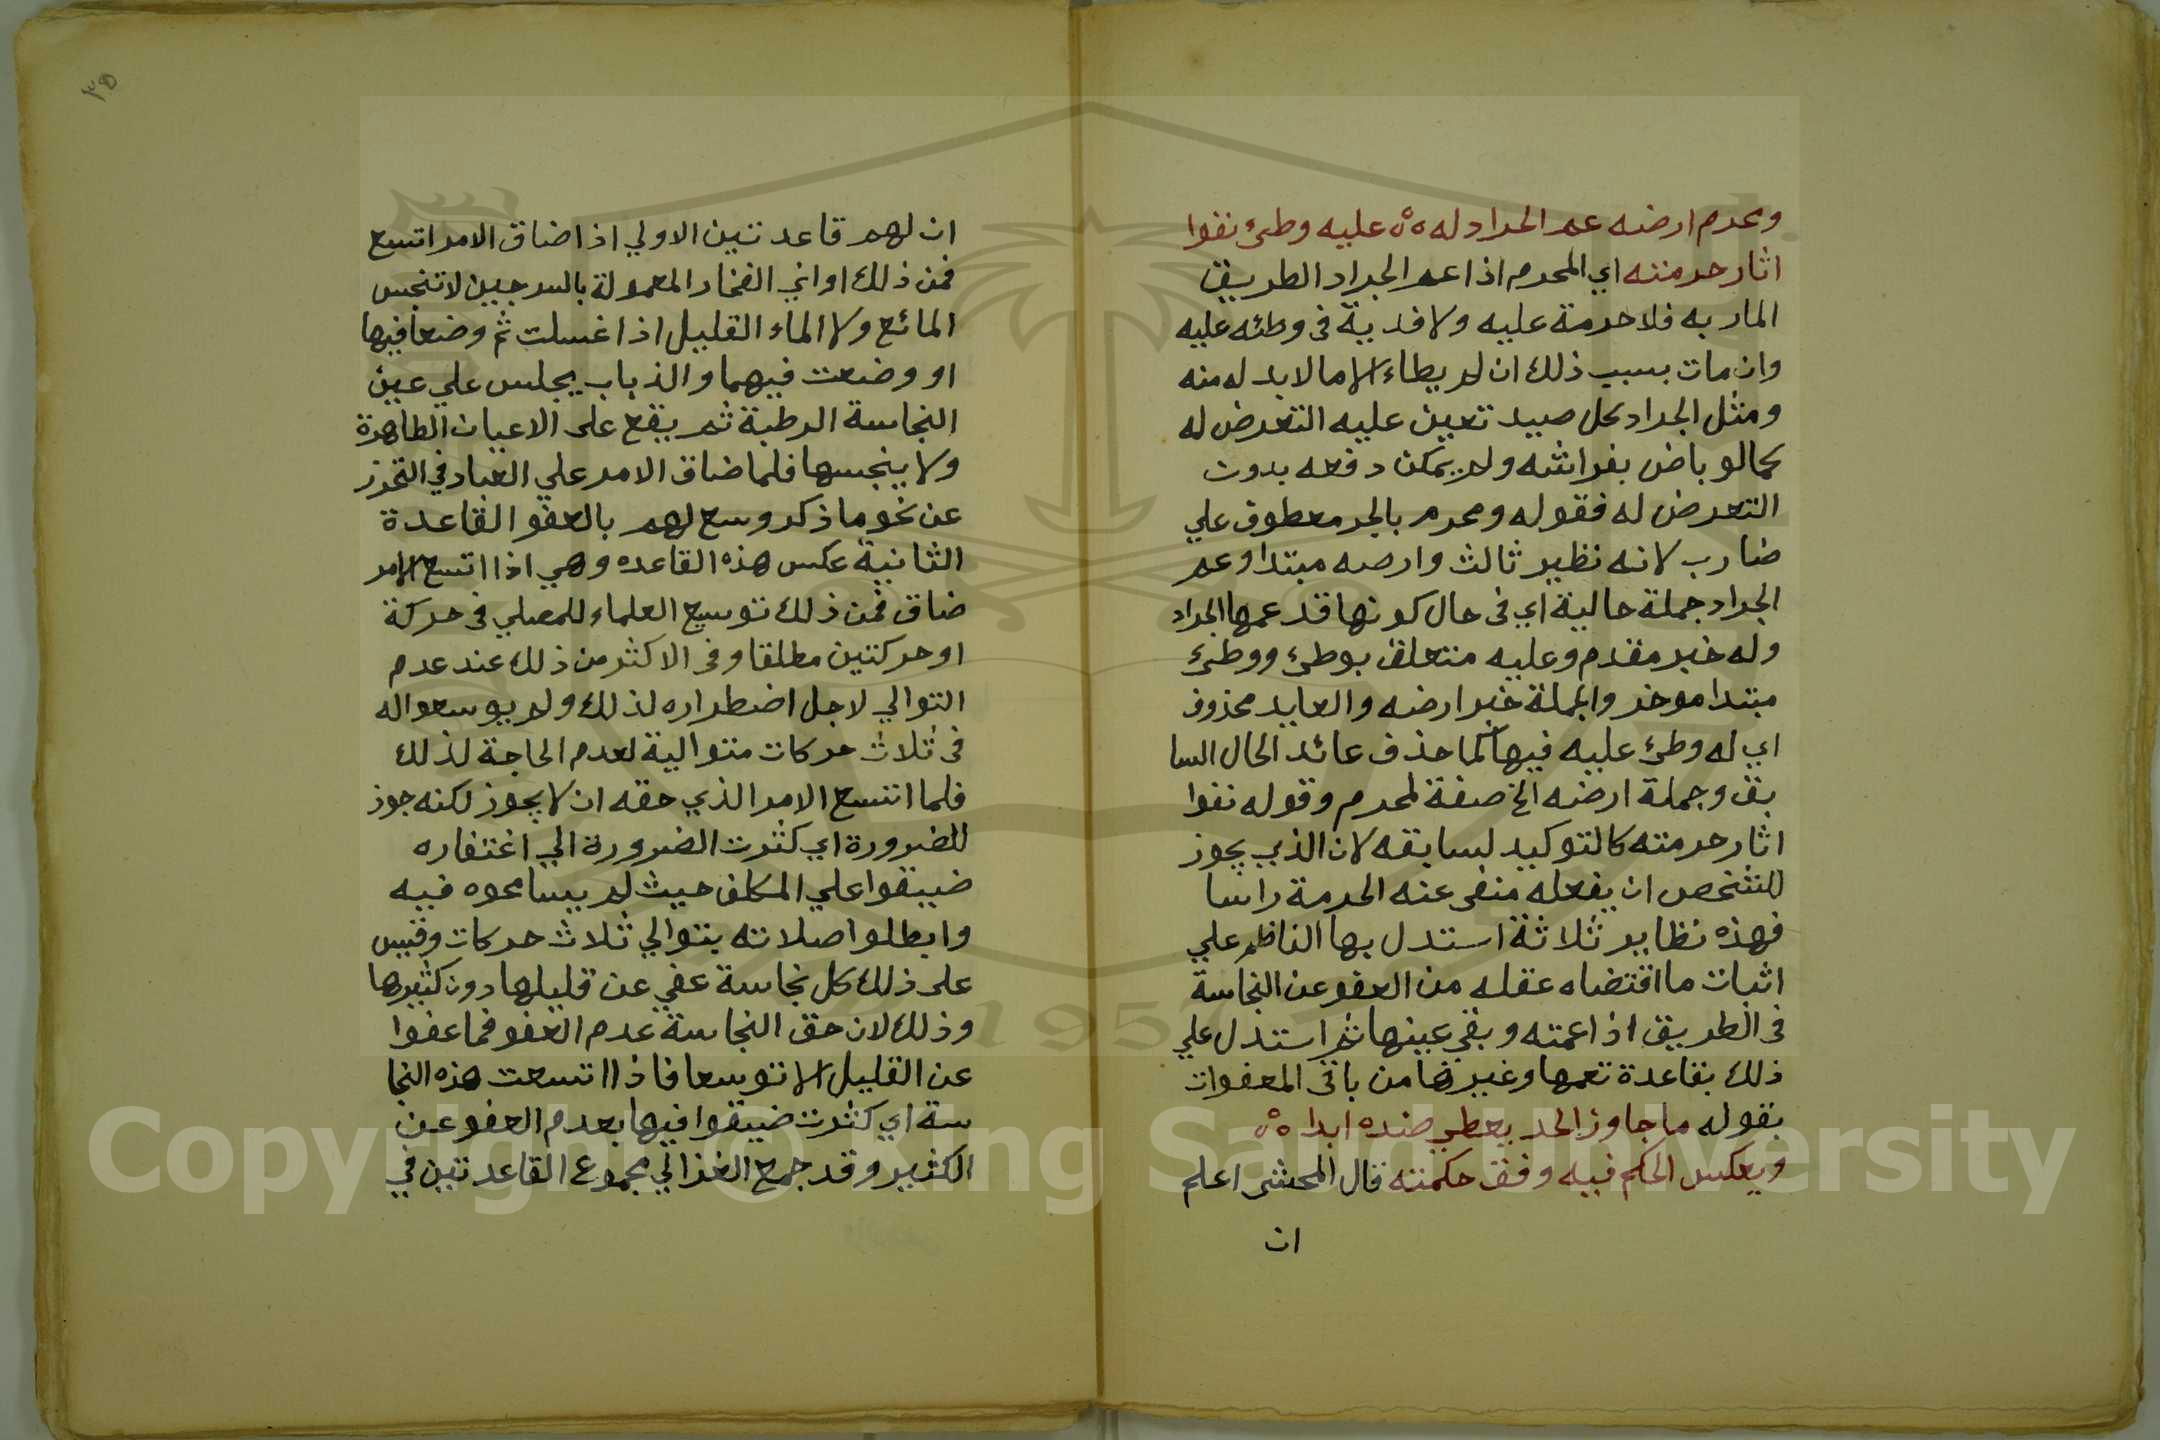 ومحرم ارضه عم الجراد له ٥٥ عليه وطئ نفوا
اثار حرمته اي المحرم اذا عم الجراد الطريق
المار به فلا حرمة عليه ولا فدية في وطئه عليه
وان مات بسبب ذلك ان لم يطاء الا ما لا بد له منه
ومثل الجراد كل صيد تعين عليه التعرض له
كما لو باض بفراشه ولم يمكن دفعه بدون
التعرض له فقوله ومحرم بالجر معطوف علي
ضارب لانه نظير ثالث وارضه مبتدا وعم
الجراد جملة حالية اي في حال كونها قد عمها الجراد
وله خبر مقدم وعليه متعلق بوطئ ووطئ
مبتدا موخر والجملة خبر ارضه والعايد محذوف
اي له وطئ عليه فيها كما حذف عائد الحال السا
بق وجملة ارضه الخ صفة لمحرم وقوله نفوا
اثار حرمته كالتوكيد لسابقه لان الذي يجوز
للشخص ان يفعله منفى عنه الحرمة راسا
فهذه نظاير ثلاثة استدل بها الناظم علي
اثبات ما اقتضاه عقله من العفو عن النجاسة
في الطريق اذا عمته وبقي عينها ثم استدل علي
ذلك بقاعدة تعمها وغيرها من باقى المعفوات
بقوله ما جاوز الحد يعطي ضده ابدا ٥٥
ويعكس الحكم فيه وفق حكمته قال المحشى اعلم
ان
٣٥
ان لهم قاعدتين الاولي اذا ضاق الامر اتسع
فمن ذلك اواني الفخار المعمولة بالسرجين لا تنجس
المائع ولا الماء القليل اذا غسلت ثم وضعا فيها
او وضعت فيهما والذباب يجلس علي عين
النجاسة الرطبة ثم يقع على الاعيان الطاهرة
ولا ينجسها فلما ضاق الامر علي العباد في التحرز
عن نحو ما ذكر وسع لهم بالعفو القاعدة
الثانية عكس هذه القاعده وهي اذا اتسع الامر
ضاق فمن ذلك توسيع العلماء للمصلي في حركة
او حركتين مطلقا وفي الاكثر من ذلك عند عدم
التوالي لاجل اضطراره لذلك ولم يوسعوا له
في ثلاث حركات متوالية لعدم الحاجة لذلك
فلما اتسع الامر الذي حقه ان لا يجوز لكنه جوز
للضرورة اي كثرت الضرورة الي اغتفاره
ضيقوا علي المكلف حيث لم يسامحوه فيه
وابطلوا صلاته بتوالي ثلاث حركات وقيس
على ذلك كل نجاسة عفي عن قليلها دون كثيرها
وذلك لان حق النجاسة عدم العفو فما عفوا
عن القليل الا توسعا فاذا اتسعت هذه النجا
سة اي كثرت ضيقوا فيها بعدم العفو عن
الكثير وقد جمع الغزالي مجموع القاعدتين في
1957
Copyright © King Saud University